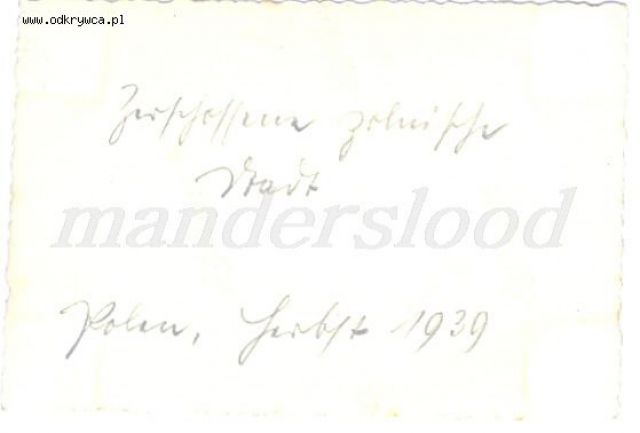 www.odkrywca.pl
Zerschossene polnische
Stadt
manderslood
Polen, Herbst 1939